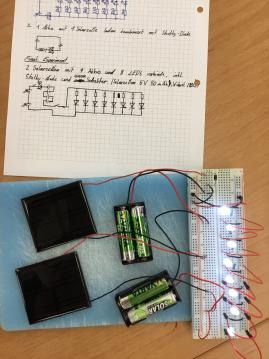 2. 1 Akku mit 1 Solarzelle laden kombiniert mit Shottky-Diode
Final Experiment:
2 Solarzellen mit 4 Akkus und 8 LEDs verbinden, inkl.
Shottky-Diode und Schalter. (Solarzellen 5V 80 mA
SOLAR